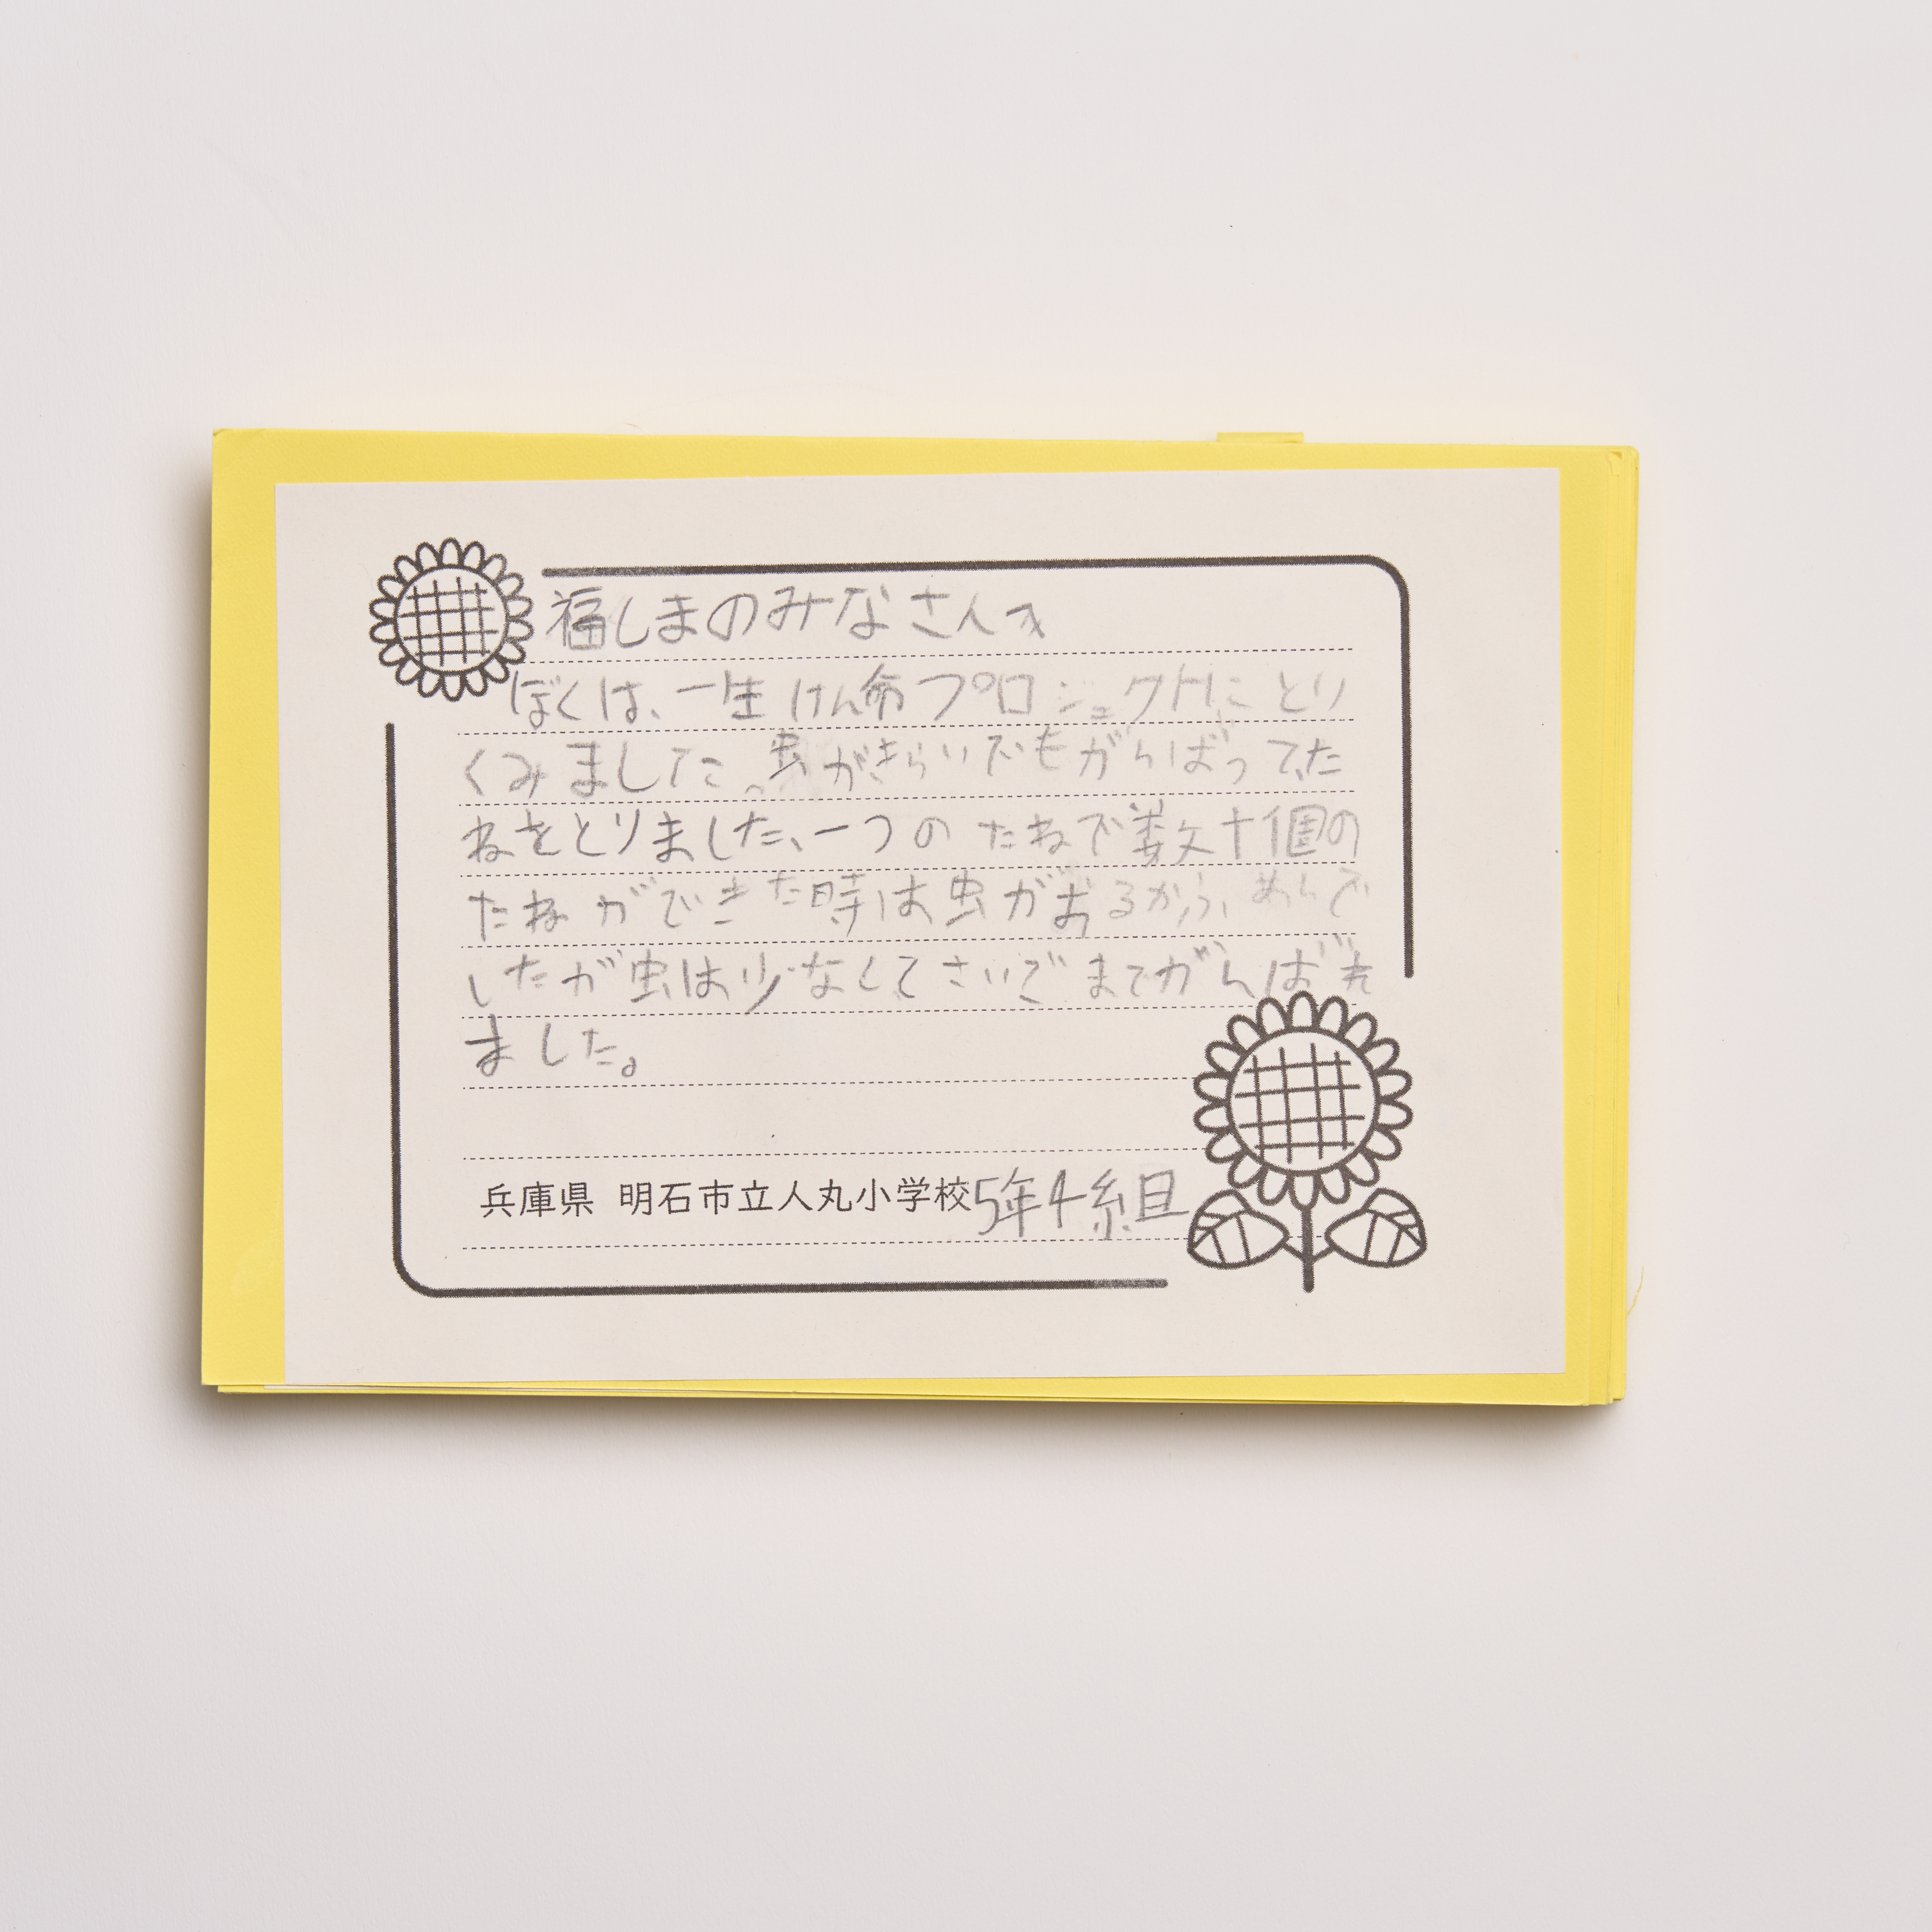 福しまのみなさんへ
ぼくは、一生けん命プロジェクトにとり
くみました。虫がきらいでもがんばってた
ねをとりました、一つのたねで数十個の
たねができた時は虫がおるから、
したが虫は少なくてさいごまでがんばれ
ました。
兵庫県 明石市立人丸小学校5年4組